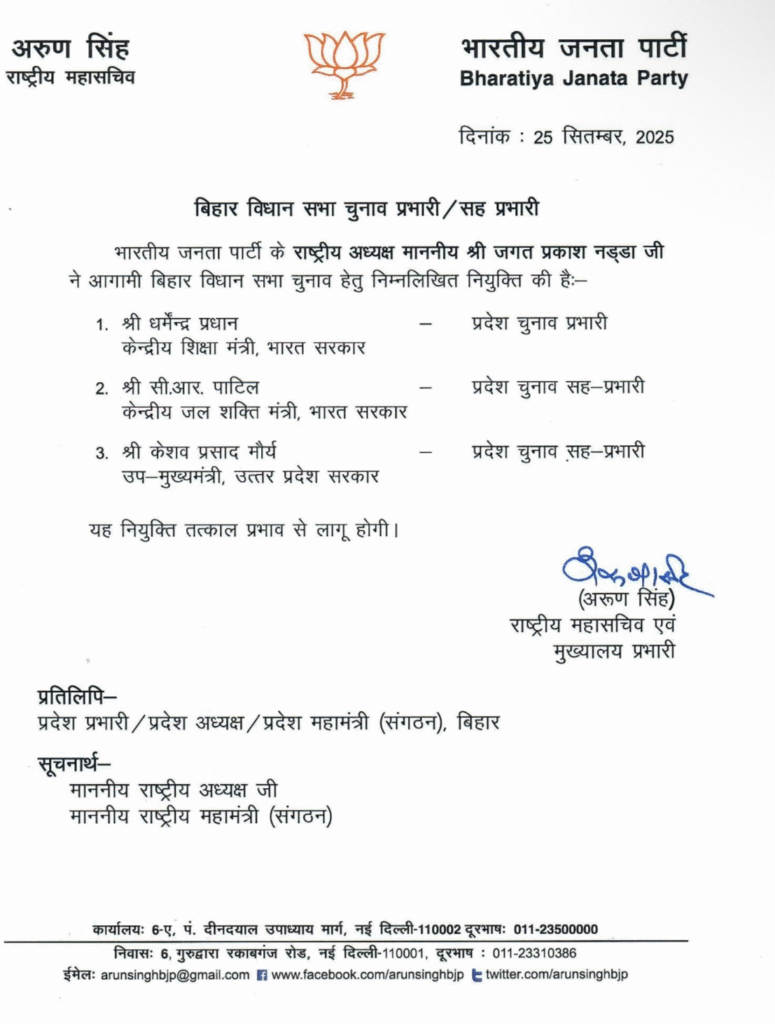 अरुण सिंह
राष्ट्रीय महासचिव
भारतीय जनता पार्टी
Bharatiya Janata Party
दिनांक : 25 सितम्बर, 2025
बिहार विधान सभा चुनाव प्रभारी/सह प्रभारी
भारतीय जनता पार्टी के राष्ट्रीय अध्यक्ष माननीय श्री जगत प्रकाश नड्डा जी
ने आगामी बिहार विधान सभा चुनाव हेतु निम्नलिखित नियुक्ति की हैः–
1. श्री धर्मेन्द्र प्रधान – प्रदेश चुनाव प्रभारी
केन्द्रीय शिक्षा मंत्री, भारत सरकार
2. श्री सी.आर. पाटिल – प्रदेश चुनाव सह–प्रभारी
केन्द्रीय जल शक्ति मंत्री, भारत सरकार
3. श्री केशव प्रसाद मौर्य – प्रदेश चुनाव सह–प्रभारी
उप–मुख्यमंत्री, उत्तर प्रदेश सरकार
यह नियुक्ति तत्काल प्रभाव से लागू होगी।
(अरूण सिंह)
राष्ट्रीय महासचिव एवं
मुख्यालय प्रभारी
प्रतिलिपि–
प्रदेश प्रभारी/प्रदेश अध्यक्ष/प्रदेश महामंत्री (संगठन), बिहार
सूचनार्थ–
माननीय राष्ट्रीय अध्यक्ष जी
माननीय राष्ट्रीय महामंत्री (संगठन)
कार्यालयः 6-ए, पं. दीनदयाल उपाध्याय मार्ग, नई दिल्ली-110002 दूरभाषः 011-23500000
निवासः 6, गुरुद्वारा रकाबगंज रोड, नई दिल्ली-110001, दूरभाष : 011-23310386
ईमेलः arunsinghbjp@gmail.com www.facebook.com/arunsinghbjp twitter.com/arunsinghbjp